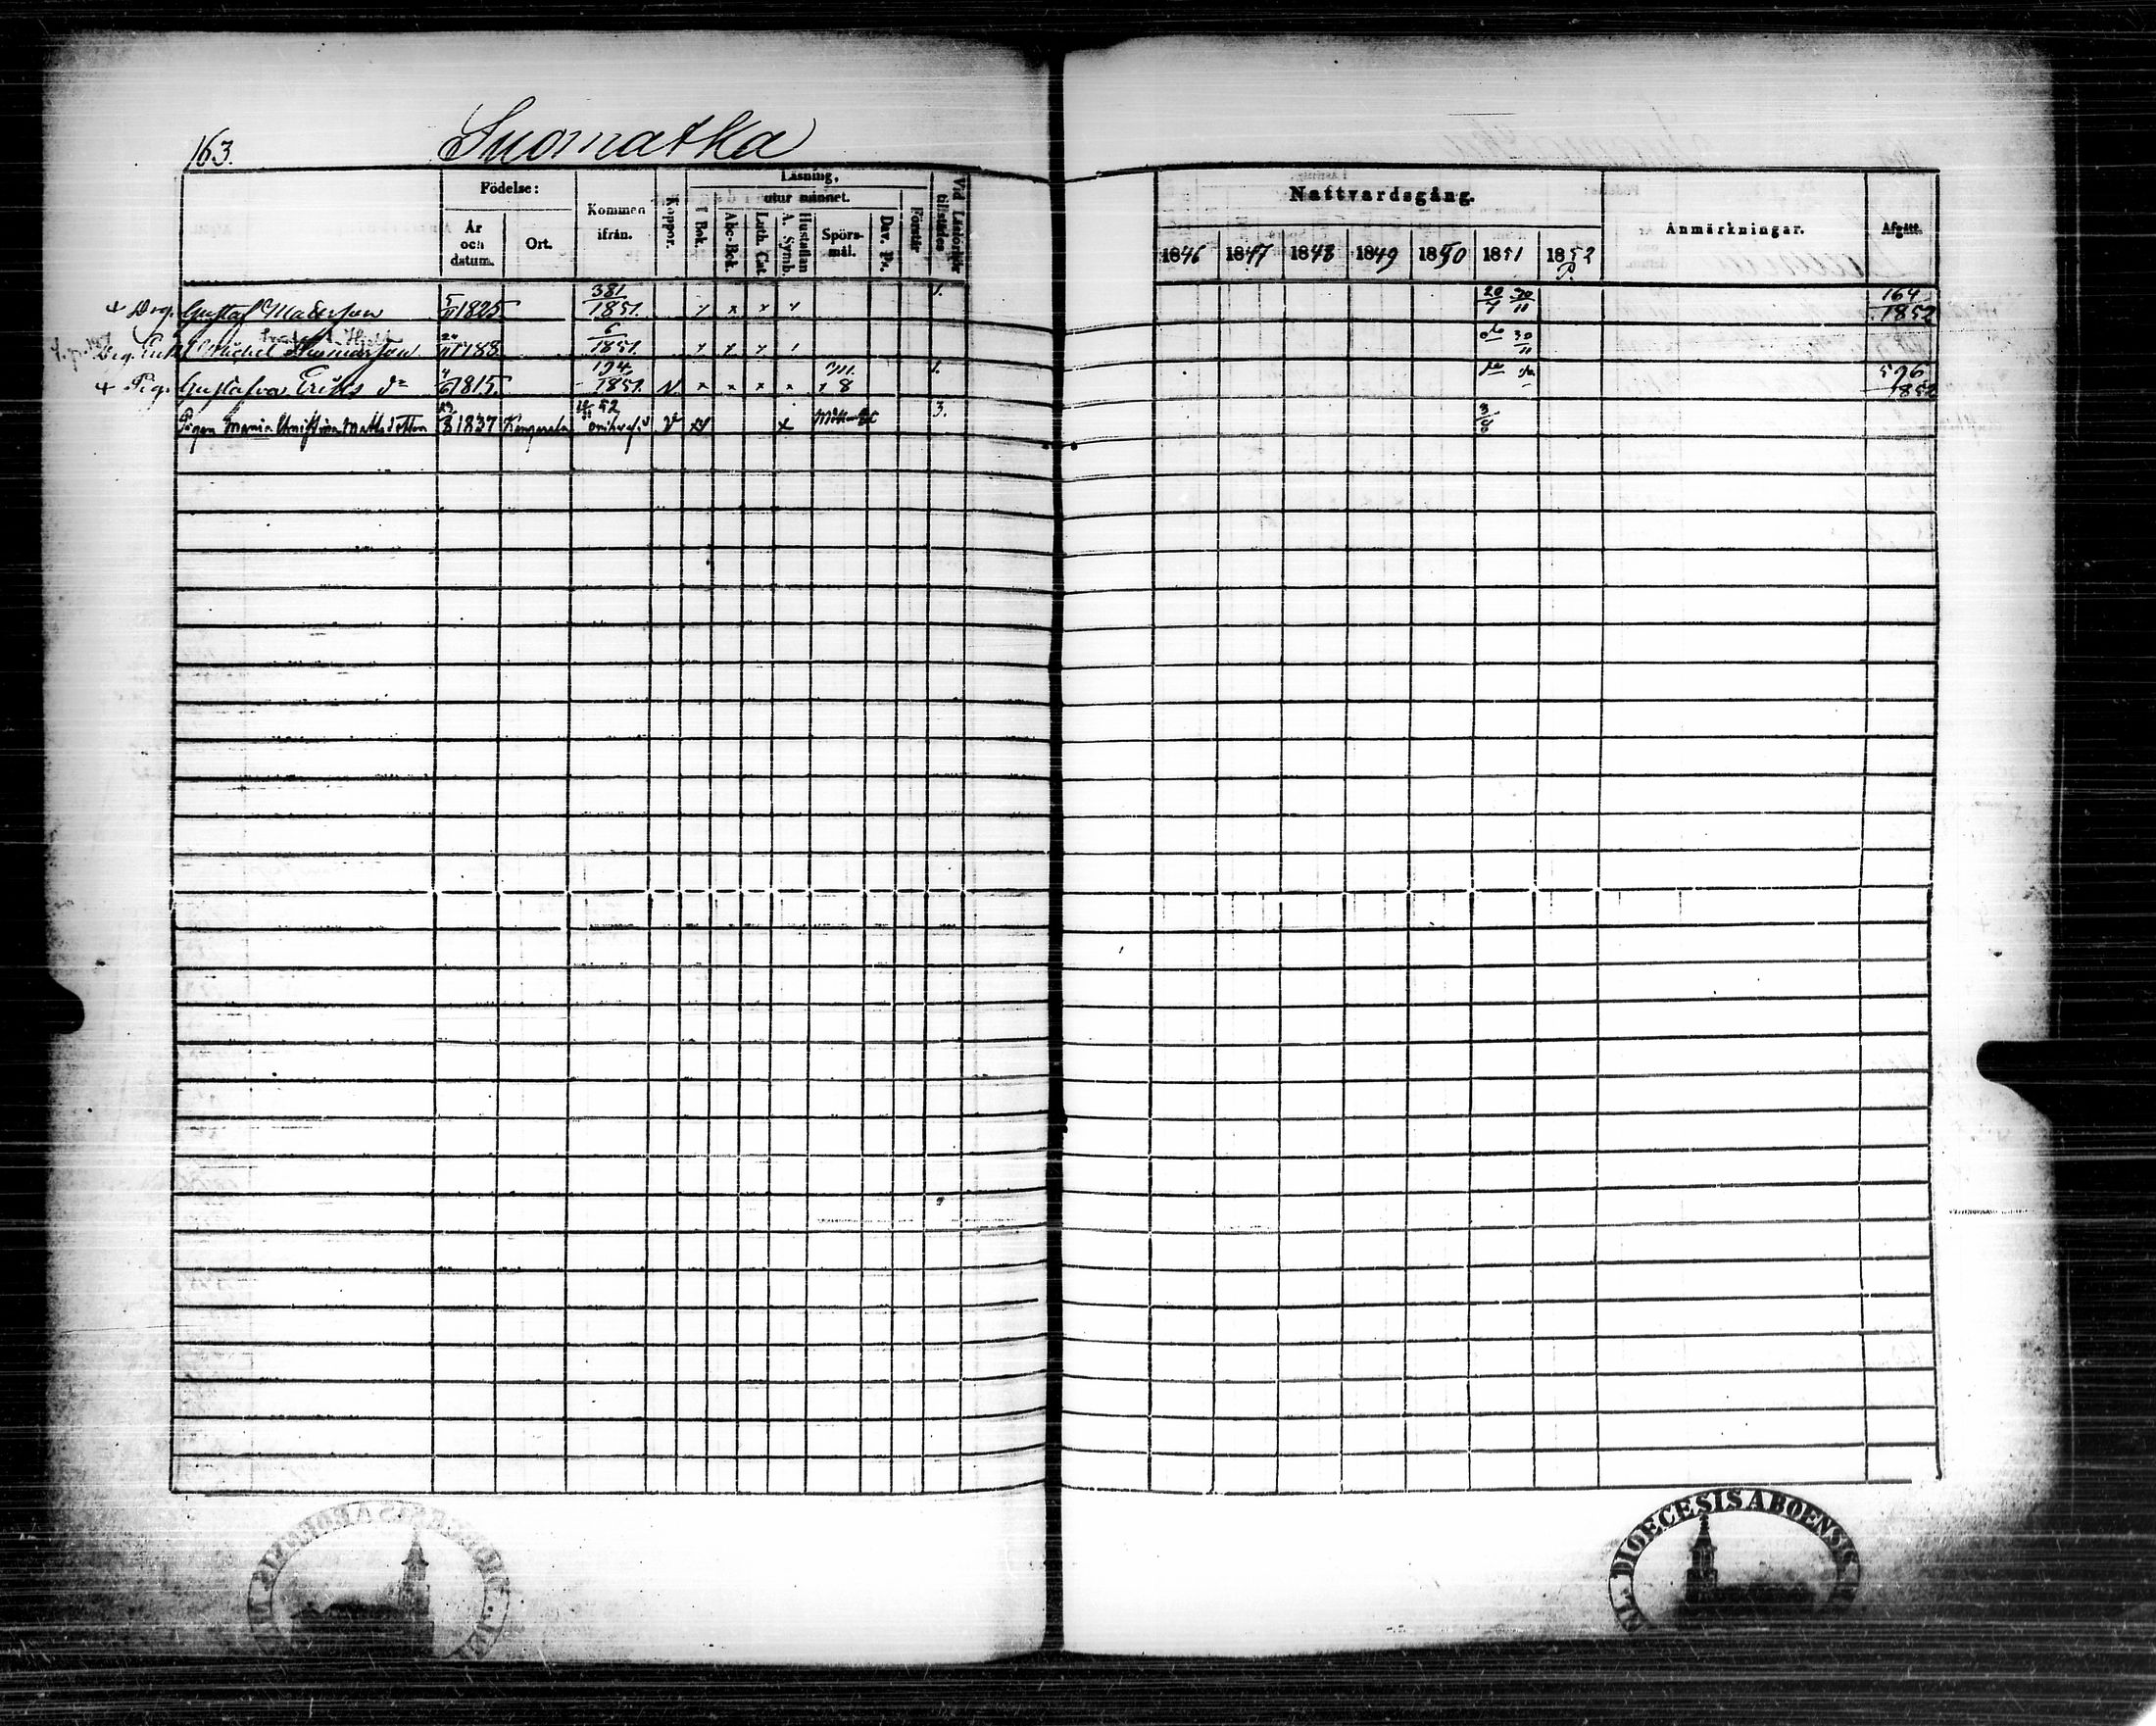 163. Suomatka
Födelse: Kommen ifrån. Koppor. Läsning, utur minnet. Vid Läsförhör tillstädes
År och datum. Ort. I Bok. Abc-Bok. Luth. Cat. Hustaflan A. Symb. Spörsmål. Dav. Ps. Förstår
Nattvardsgång. Anmärkningar. Afgått.
1846 1847 1848 1849 1850 1851 1852 P.
Drg. Gustaf Matsson 5/11 1825 381/1851. x x x x 1. 20/4 30/11 164/1852
Drg. Enkl. Michel Thomasson 1788 6/1851. do 30/11
Pig. Gustafva Eriks dr 1815. 194/1851. N. x x x x x 8 1. do do 596/1852
Pigan Maria Christina Matts dotter 1837 52 3. 3/8
DIOECESIS ABOENSIS